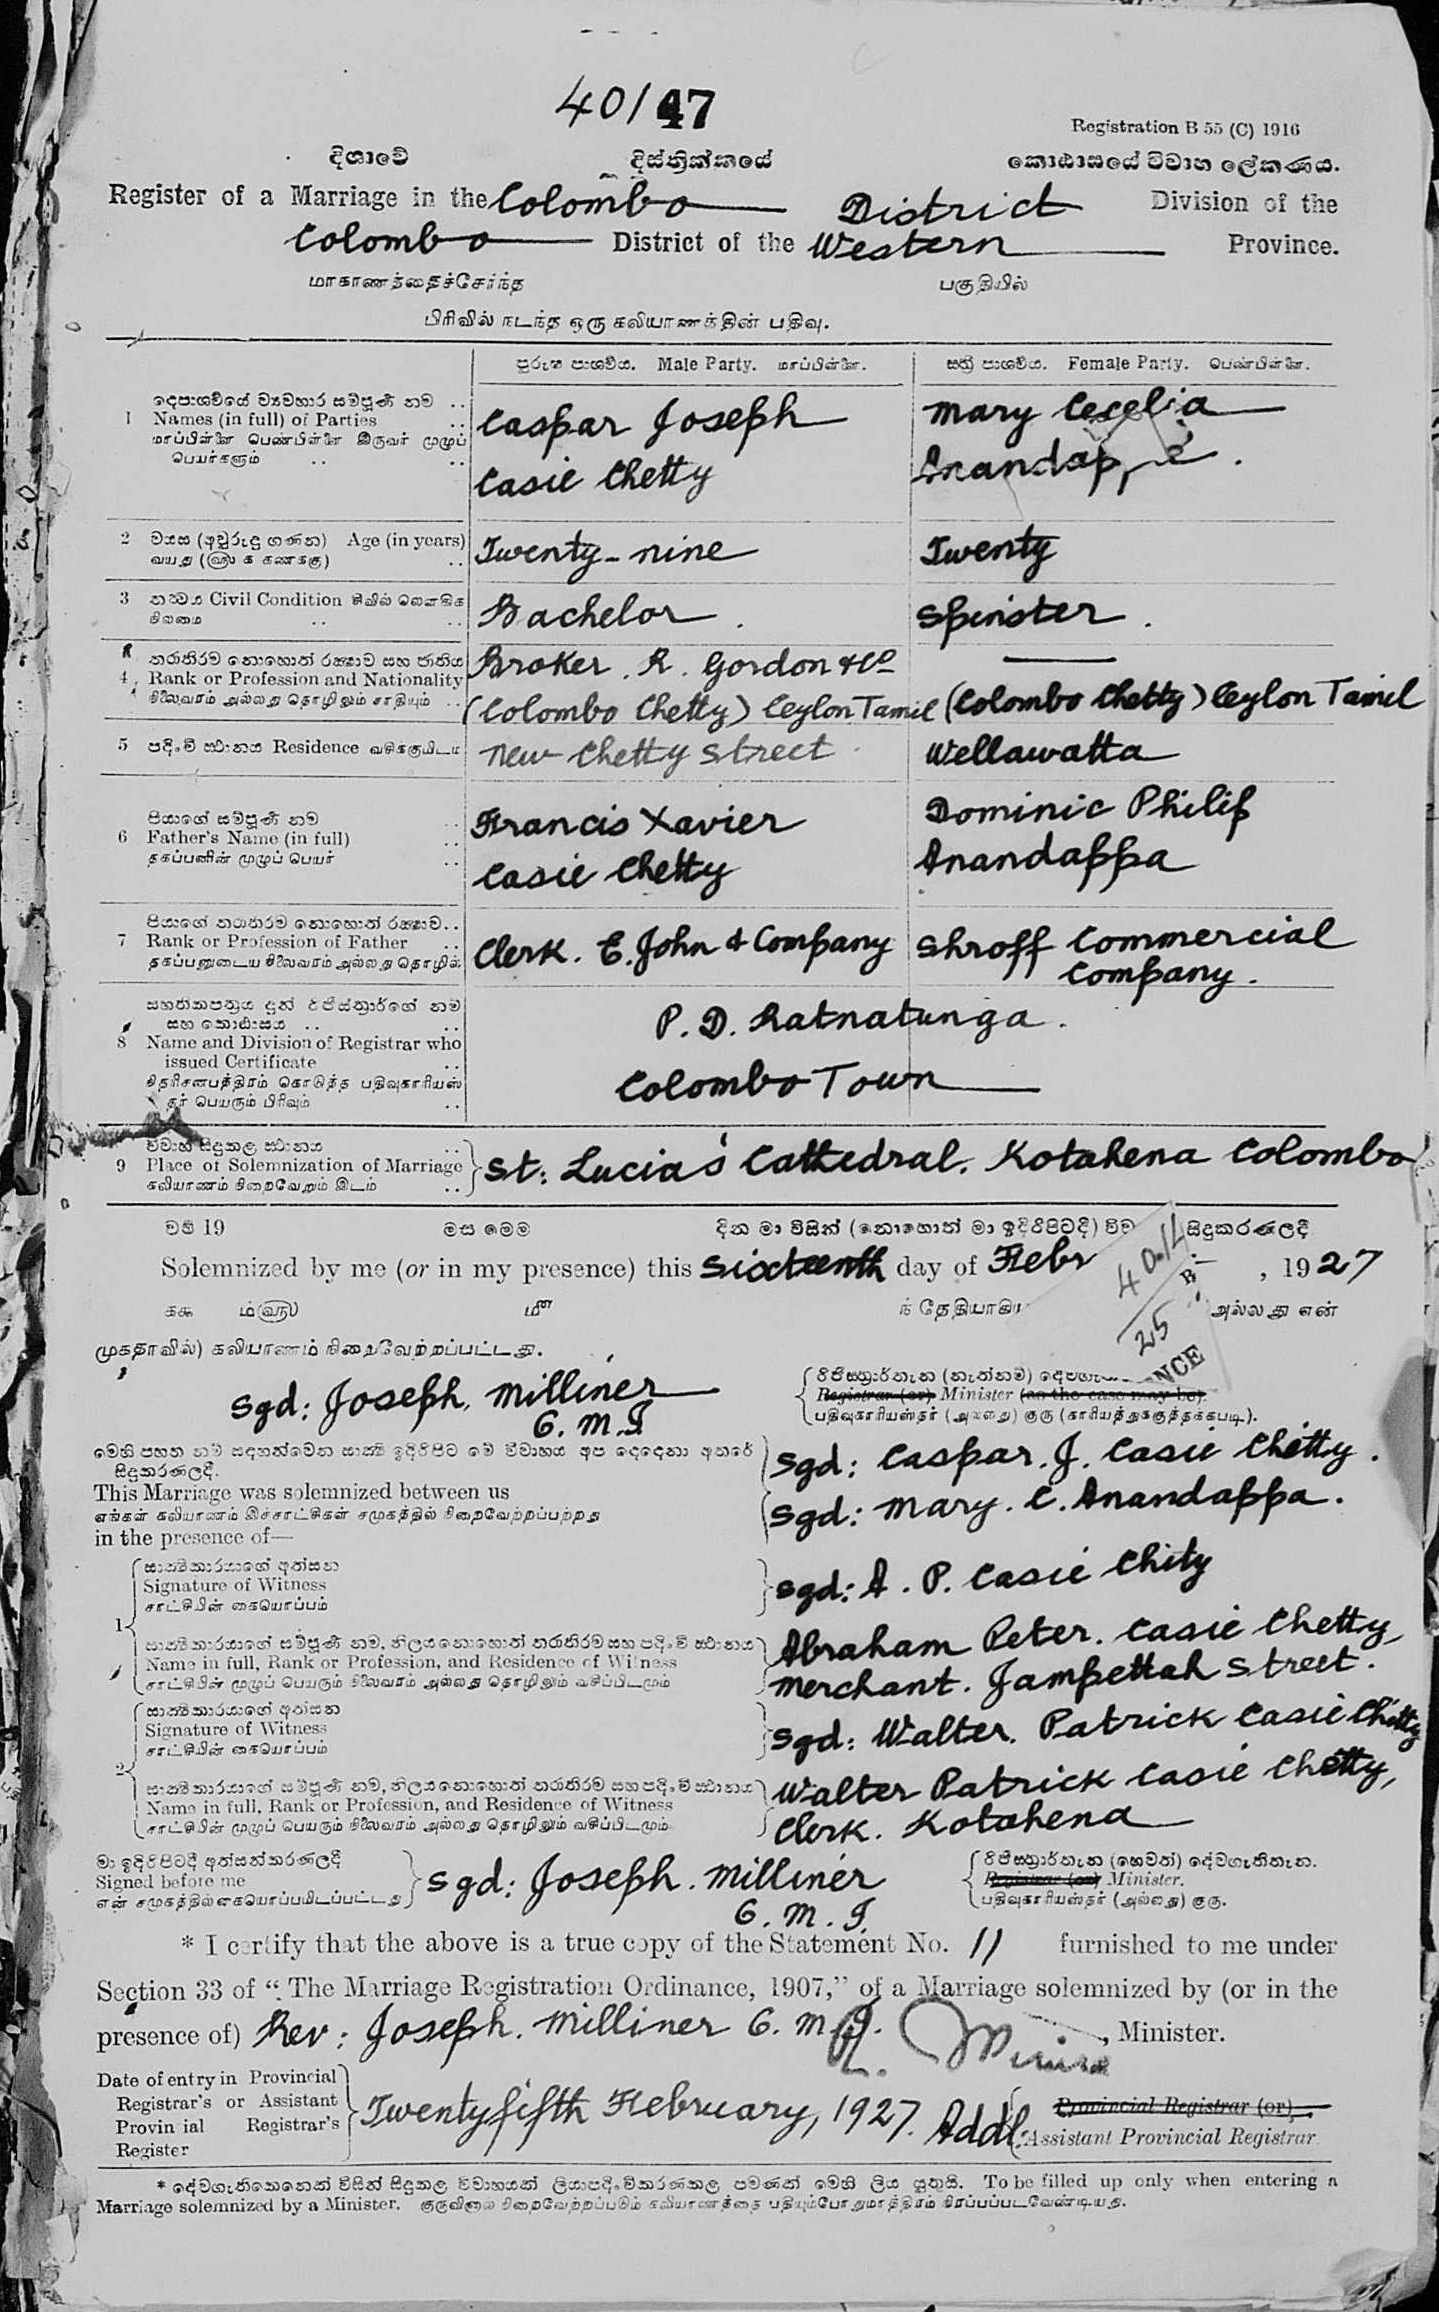 40/47
Registration B 55 (C) 1916
දිශාවේ දිස්ත්‍රික්කයේ කොඨාසයේ විවාහ ලේකණය.
Register of a Marriage in the Colombo District Division of the
Colombo District of the Western Province.
மாகாணத்தைச்சேர்ந்த பகுதியில்
பிரிவில் நடந்த ஒரு கலியாணத்தின் பதிவு.
පුරුෂ පාර්ශවය. Male Party. மாப்பிள்ளை. ස්ත්‍රී පාර්ශවය. Female Party. பெண்பிள்ளை.
දෙපාර්ශවයේ ව්‍යවහාර සම්පූර්ණ නම ..
1 Names (in full) of Parties ..
மாப்பிள்ளை பெண்பிள்ளை இருவர் முழுப்
பெயர்களும் .. ..
Caspar Joseph
Casie Chetty
Mary Cecelia
Anandappa.
2 වයස (අවුරුදු ගණන) Age (in years)
வயது (௵ க கணக்கு) ..
Twenty-nine Twenty
3 තත්වය Civil Condition சிவில் லௌகிக
நிலமை .. ..
Bachelor. Spinster.
තරාතිරම නොහොත් රක්ෂාව සහ ජාතිය
4 Rank or Profession and Nationality
நிலைவரம் அல்லது தொழிலும் சாதியும் ..
Broker. R. Gordon & Co
(Colombo Chetty) Ceylon Tamil (Colombo Chetty) Ceylon Tamil
5 පදිංචි ස්ථානය Residence வசிக்குமிடம்
New Chetty Street Wellawatta
පියාගේ සම්පූර්ණ නම ..
6 Father's Name (in full) ..
தகப்பனின் முழுப் பெயர் ..
Francis Xavier
Casie Chetty
Dominic Philip
Anandappa
පියාගේ තරාතිරම නොහොත් රක්ෂාව..
7 Rank or Profession of Father ..
தகப்பனுடைய நிலைவரம் அல்லது தொழில்
Clerk. E. John & Company Shroff Commercial
Company.
සහතිකපත්‍රය දුන් රෙජිස්ත්‍රාර්ගේ නම
සහ කොඨාසය .. ..
8 Name and Division of Registrar who
issued Certificate ..
அத்தாட்சிபத்திரம் கொடுத்த பதிவுகாரியஸ்
தர் பெயரும் பிரிவும் ..
P. D. Ratnatunga.
Colombo Town
විවාහ සිදුකල ස්ථානය ..
9 Place of Solemnization of Marriage
கலியாணம் நிறைவேறும் இடம் ..
St: Lucia's Cathedral. Kotahena Colombo
වර්ෂ 19 මස මෙම දින මා විසින් (නොහොත් මා ඉදිරිපිටදී) සිදුකරණලදී
Solemnized by me (or in my presence) this Sixteenth day of Febr , 1927
௧௯ ம்௵ மீ தேதியாகிய அல்லது என்
முகதாவில்) கலியாணம் நிறைவேற்றப்பட்டது.
40.14
25
NCE
Sgd: Joseph. Milliner
O. M. I.
රෙජිස්ත්‍රාර්තැන (නැත්නම්)
Registrar (or) Minister (as the case may be).
பதிவுகாரியஸ்தர் (அல்லது) குரு (காரியத்துக்குத்தக்கபடி).
මෙහි පහත නම් සඳහන්වෙන සාක්ෂි ඉදිරිපිට මේ විවාහය අප දෙදෙනා අතරේ
සිදුකරණලදී.
This Marriage was solemnized between us
எங்கள் கலியாணம் இச்சாட்சிகள் சமுகத்தில் நிறைவேற்றப்பற்றது
in the presence of—
Sgd: Caspar. J. Casie Chetty.
Sgd: Mary. C. Anandappa.
සාක්ෂිකාරයාගේ අත්සන
Signature of Witness
சாட்சியின் கையொப்பம்
Sgd: A. P. Casie Chitty
1
සාක්ෂිකාරයාගේ සම්පූර්ණ නම, නිලය නොහොත් තරාතිරම සහ පදිංචි ස්ථානය
Name in full, Rank or Profession, and Residence of Witness
சாட்சியின் முழுப் பெயரும் நிலைவரம் அல்லது தொழிலும் வசிப்பிடமும்
Abraham Peter. Casie Chetty,
Merchant. Jampettah Street.
සාක්ෂිකාරයාගේ අත්සන
Signature of Witness
சாட்சியின் கையொப்பம்
Sgd: Walter. Patrick Casie Chetty
2
සාක්ෂිකාරයාගේ සම්පූර්ණ නම, නිලය නොහොත් තරාතිරම සහ පදිංචි ස්ථානය
Name in full, Rank or Profession, and Residence of Witness
சாட்சியின் முழுப் பெயரும் நிலைவரம் அல்லது தொழிலும் வசிப்பிடமும்
Walter Patrick Casie Chetty,
Clerk. Kotahena
මා ඉදිරිපිටදී අත්සන්කරණලදී
Signed before me
என் சமுகத்தில் கையொப்பமிடப்பட்டது
Sgd: Joseph. Milliner
O. M. I.
රෙජිස්ත්‍රාර්තැන (හෙවත්) දේවගැතිතැන.
Registrar (or) Minister.
பதிவுகாரியஸ்தர் (அல்லது) குரு.
* I certify that the above is a true copy of the Statement No. 11 furnished to me under
Section 33 of “The Marriage Registration Ordinance, 1907,” of a Marriage solemnized by (or in the
presence of) Rev: Joseph. Milliner O. M. I. , Minister.
Date of entry in Provincial
Registrar's or Assistant
Provincial Registrar's
Register
Twentyfifth February, 1927. Addl:
Provincial Registrar (or)
Assistant Provincial Registrar
* දේවගැතිකෙනෙක් විසින් සිදුකල විවාහයක් ලියාපදිංචිකරණකල පමණක් මෙහි ලිය යුතුයි. To be filled up only when entering a
Marriage solemnized by a Minister. குருவினால் நிறைவேற்றப்படும் கலியாணத்தை பதியும்போதுமாத்திரம் நிரப்பப்படவேண்டியது.